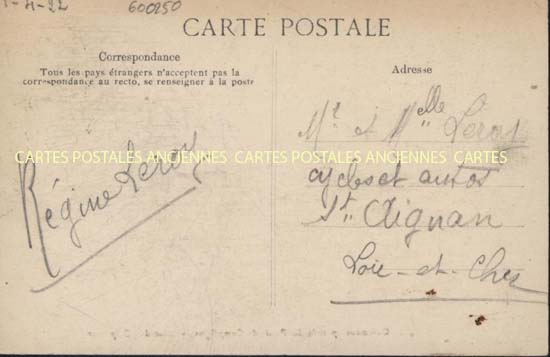 1-4-22
600250
CARTE POSTALE
Correspondance
Tous les pays étrangers n'acceptent pas la
correspondance au recto, se renseigner à la poste
Régine Leroy
Adresse
Mr et Melle Leroy
cycles et autos
St Aignan
Loir-et-Cher
CARTES POSTALES ANCIENNES CARTES POSTALES ANCIENNES CARTES